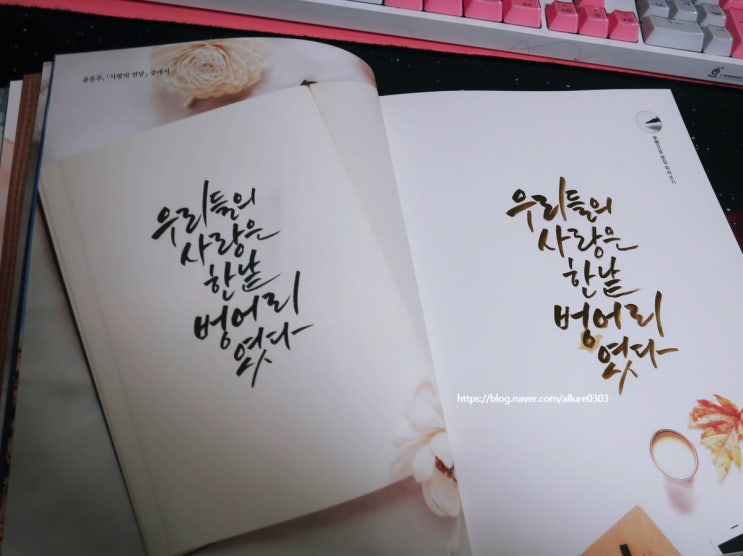 윤동주, 「사랑의 전당」 중에서
우리들의
사랑은
한낱
벙어리
였다
우리들의
사랑은
한낱
벙어리
였다
https://blog.naver.com/allure0303